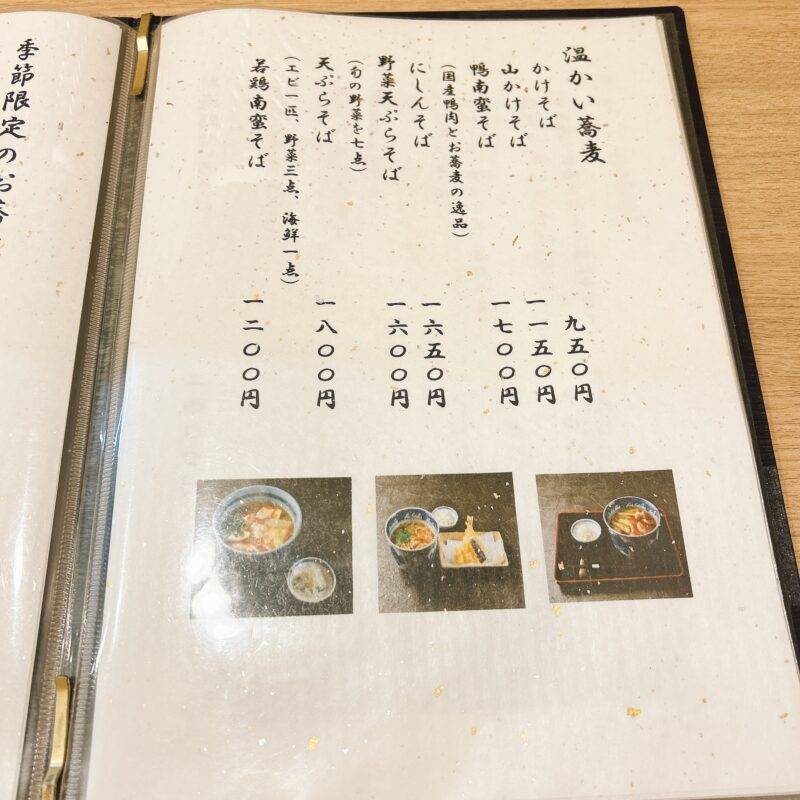 温かい蕎麦
かけそば 九五〇円
山かけそば 一一五〇円
鴨南蛮そば 一七〇〇円
(国産鴨肉とお蕎麦の逸品)
にしんそば 一六五〇円
野菜天ぷらそば 一六〇〇円
(旬の野菜を七点)
天ぷらそば 一八〇〇円
(エビ一匹、野菜三点、海鮮一点)
若鶏南蛮そば 一二〇〇円
季節限定のお蕎